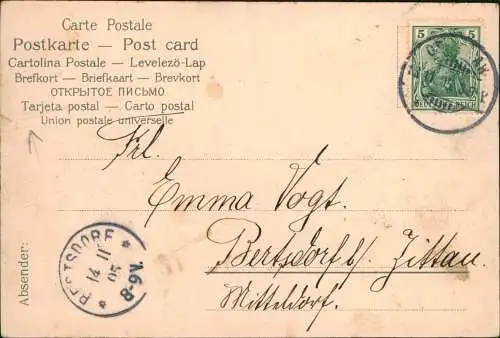 Carte Postale
Postkarte — Post card
Cartolina Postale — Levelezö-Lap
Brefkort — Briefkaart — Brevkort
ОТКРЫТОЕ ПИСЬМО
Tarjeta postal — Carto postal
Union postale universelle
5 5
DEUTSCHES REICH
Frl.
Emma Vogt.
Bertsdorf b/. Zittau.
Mitteldorf.
Absender:
BERTSDORF
14 11
05
6-8N.